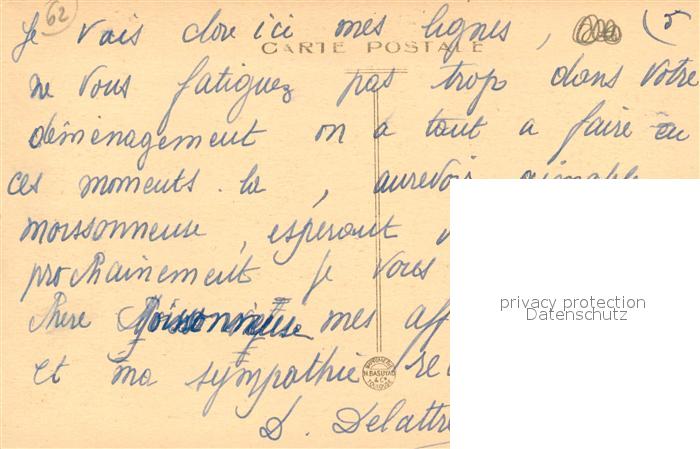 62
Je vais clore ici mes lignes,
CARTE POSTALE
ne vous fatiguez pas trop dans votre
démènagement on a tout a faire en
ces moments la, aurevoir aimable
moissonneuse, espérant
prochainement je vous
chere Moissonneuse mes aff
et ma sympathie
D. Delattre
privacy protection
Datenschutz